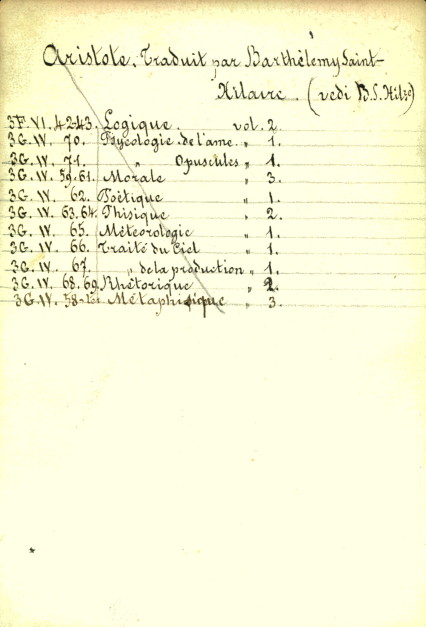 Aristote. Traduit par Barthélemy Saint-
Hilaire. (vedi B.S. Hilre)
3F. VI. 42-43. Logique. vol. 2.
3G. IV. 70. Psycologie de l'ame. " 1.
3G. IV. 71. " Opuscules " 1.
3G. IV. 59.61. Morale " 3.
3G. IV. 62. Poëtique " 1.
3G. IV. 63.64. Phisique " 2.
3G. IV. 65. Météorologie " 1.
3G. IV. 66. Traité du Ciel " 1.
3G. IV. 67. " de la production " 1.
3G. IV. 68.69. Rhétorique " 2.
3G. IV. 58- Métaphisique " 3.
*